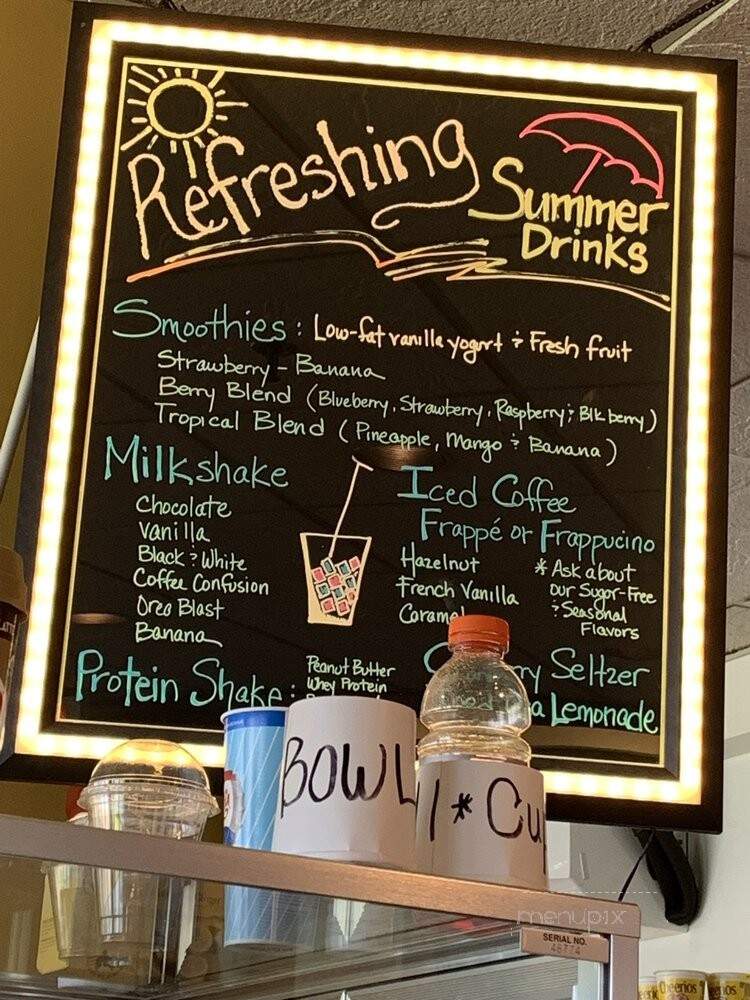 Refreshing
Summer
Drinks
Smoothies : Low-fat vanilla yogurt & Fresh fruit
Strawberry - Banana
Berry Blend (Blueberry, Strawberry, Raspberry & Blk berry)
Tropical Blend (Pineapple, Mango & Banana)
Milkshake
Chocolate
Vanilla
Black & White
Coffee Confusion
Oreo Blast
Banana
Iced Coffee
Frappé or Frappucino
Hazelnut
French Vanilla
Caramel
* Ask about
our Sugar-Free
& Seasonal
Flavors
Protein Shake :
Peanut Butter
Whey Protein
Seltzer
Lemonade
BOWL
1 * Cu
menupix
SERIAL NO.
Cheerios